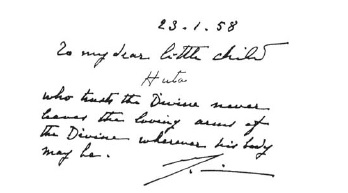 23-1-58
To my dear little child
Huta
who trusts the Divine never
leaves the loving arms of
the Divine wherever his body
may be.